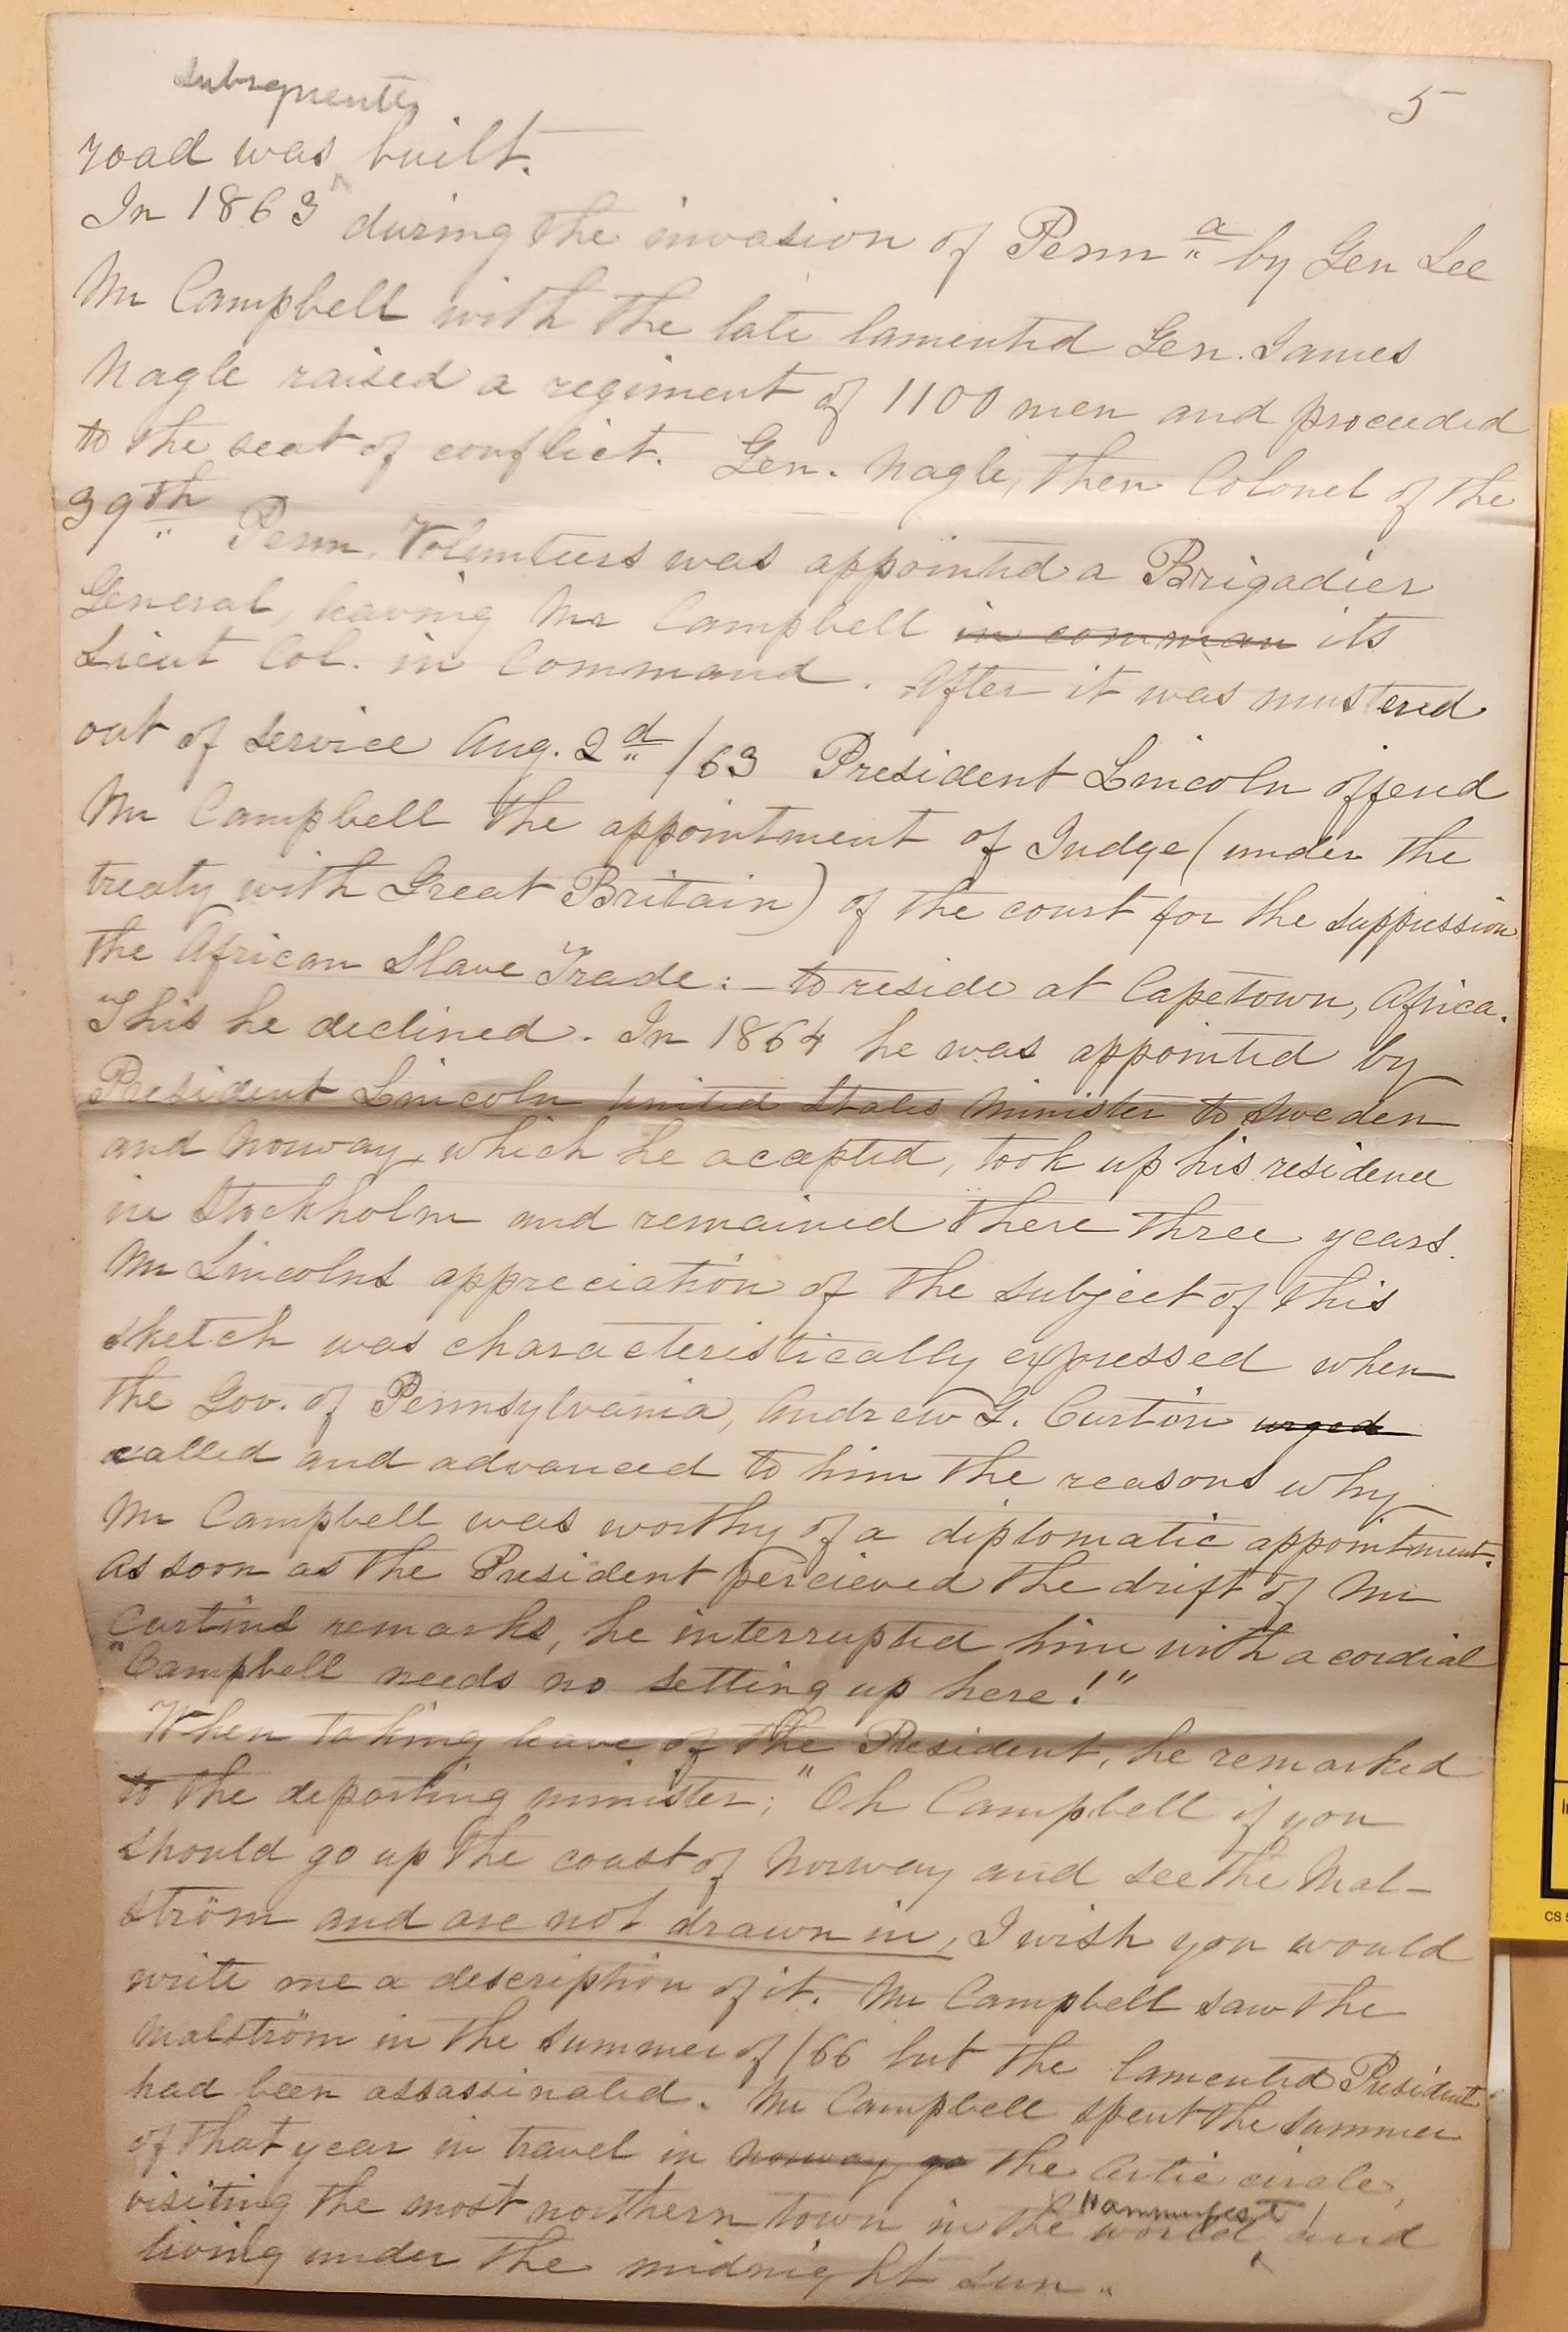 5
subsequently
road was built.
In 1863 during the invasion of Penna by Gen Lee
Mr Campbell with the late lamented Gen. James
Nagle raised a regiment of 1100 men and proceeded
to the seat of conflict. Gen. Nagle, then Colonel of the
39th Penn. Volunteers was appointed a Brigadier
General, leaving Mr Campbell in comman its
Lieut Col. in Command. After it was mustered
out of service Aug. 2d /63 President Lincoln offered
Mr Campbell the appointment of Judge (under the
treaty with Great Britain) of the court for the suppression
the African Slave Trade:– to reside at Capetown, Africa.
This he declined. In 1864 he was appointed by
President Lincoln United States Minister to Sweden
and Norway, which he accepted, took up his residence
in Stockholm and remained there three years.
Mr Lincolns appreciation of the subject of this
sketch was characteristically expressed when
the Gov. of Pennsylvania, Andrew G. Curtin urged
called and advanced to him the reasons why
Mr Campbell was worthy of a diplomatic appointment.
As soon as the President percieved the drift of Mr
Curtins remarks, he interrupted him with a cordial
"Campbell needs no setting up here!"
When taking leave of the President, he remarked
to the departing minister; "Oh Campbell if you
should go up the coast of Norway and see the Mal-
ström and are not drawn in, I wish you would
write me a description of it. Mr Campbell saw the
Malström in the summer of /66 but the lamented President
had been assassinated. Mr Campbell spent the summer
of that year in travel in Norway, go the Artic circle,
visiting the most northern town in the world, and
Hammerfest
living under the midnight sun.
CS